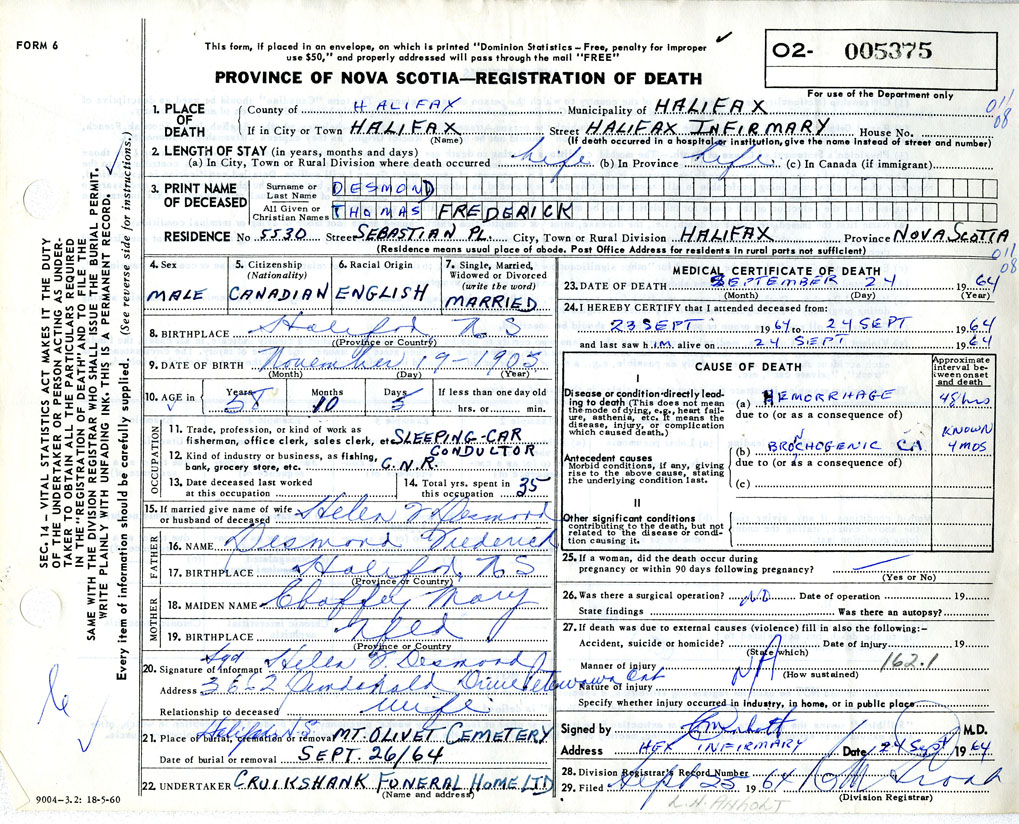 FORM 6
This form, if placed in an envelope, on which is printed "Dominion Statistics – Free, penalty for improper
use $50," and properly addressed will pass through the mail "FREE"
PROVINCE OF NOVA SCOTIA—REGISTRATION OF DEATH
O2- 005375
For use of the Department only
011
08
1. PLACE OF DEATH { County of HALIFAX Municipality of HALIFAX
If in City or Town HALIFAX Street HALIFAX INFIRMARY House No.
(Name) (If death occurred in a hospital or institution, give the name instead of street and number)
2. LENGTH OF STAY (in years, months and days)
(a) In City, Town or Rural Division where death occurred Life (b) In Province Life (c) In Canada (if immigrant)
3. PRINT NAME OF DECEASED { Surname or Last Name DESMOND
All Given or Christian Names THOMAS FREDERICK
RESIDENCE No 5530 Street SEBASTIAN PL. City, Town or Rural Division HALIFAX Province NOVA SCOTIA
(Residence means usual place of abode. Post Office Address for residents in rural parts not sufficient)
011
08
4. Sex MALE
5. Citizenship (Nationality) CANADIAN
6. Racial Origin ENGLISH
7. Single, Married, Widowed or Divorced (write the word) MARRIED
8. BIRTHPLACE Halifax N S
(Province or Country)
9. DATE OF BIRTH November 19 – 1903
(Month) (Day) (Year)
10. AGE in { Years 58 Months 10 Days 5 If less than one day old
hrs. or min.
OCCUPATION
11. Trade, profession, or kind of work as
fisherman, office clerk, sales clerk, etc. SLEEPING-CAR
CONDUCTOR
12. Kind of industry or business, as fishing,
bank, grocery store, etc. C.N.R.
13. Date deceased last worked
at this occupation
14. Total yrs. spent in
this occupation 35
15. If married give name of wife
or husband of deceased Helen F Desmond
FATHER
16. NAME Desmond Frederick
17. BIRTHPLACE Halifax, N S
(Province or Country)
MOTHER
18. MAIDEN NAME Chaffey Mary
19. BIRTHPLACE Nfld
(Province or Country)
20. Signature of informant Sgd Helen F. Desmond
Address 3662 Drive Petawawa Ont
Relationship to deceased wife
21. Place of burial, cremation or removal Halifax N.S MT. OLIVET CEMETERY
Date of burial or removal SEPT. 26/64
22. UNDERTAKER CRUIKSHANK FUNERAL HOME LTD
(Name and address)
9004-3.2: 18-5-60
MEDICAL CERTIFICATE OF DEATH
23. DATE OF DEATH SEPTEMBER 24 1964
(Month) (Day) (Year)
24. I HEREBY CERTIFY that I attended deceased from:
23 SEPT 1964 to 24 SEPT 1964
and last saw h.I.M. alive on 24 SEPT 1964
CAUSE OF DEATH
Approximate interval between onset and death
I
Disease or condition directly leading to death (This does not mean the mode of dying, e.g., heart failure, asthenia, etc. It means the disease, injury, or complication which caused death.)
(a) HEMORRHAGE 48 hrs
due to (or as a consequence of)
Antecedent causes
Morbid conditions, if any, giving rise to the above cause, stating the underlying condition last.
(b) BRONCHOGENIC CA KNOWN 4 MOS
due to (or as a consequence of)
(c)
II
Other significant conditions
contributing to the death, but not related to the disease or condition causing it.
25. If a woman, did the death occur during
pregnancy or within 90 days following pregnancy? —
(Yes or No)
26. Was there a surgical operation? NO Date of operation 19
State findings Was there an autopsy?
27. If death was due to external causes (violence) fill in also the following:-
Accident, suicide or homicide? Date of injury 19
(State which)
Manner of injury NA 162.1
(How sustained)
Nature of injury
Specify whether injury occurred in industry, in home, or in public place
Signed by M.D.
Address HFX INFIRMARY Date 24 Sept 1964
28. Division Registrar's Record Number
29. Filed Sept 25 1964
(Division Registrar)
L.H. ANHOLT
SEC. 14 — VITAL STATISTICS ACT MAKES IT THE DUTY
OF THE UNDERTAKER OR PERSON ACTING AS UNDER-
TAKER TO OBTAIN ALL THE PARTICULARS REQUIRED
IN THE "REGISTRATION OF DEATH" AND TO FILE THE
SAME WITH THE DIVISION REGISTRAR WHO SHALL ISSUE THE BURIAL PERMIT.
WRITE PLAINLY WITH UNFADING INK. THIS IS A PERMANENT RECORD.
Every item of information should be carefully supplied. (See reverse side for instructions.)